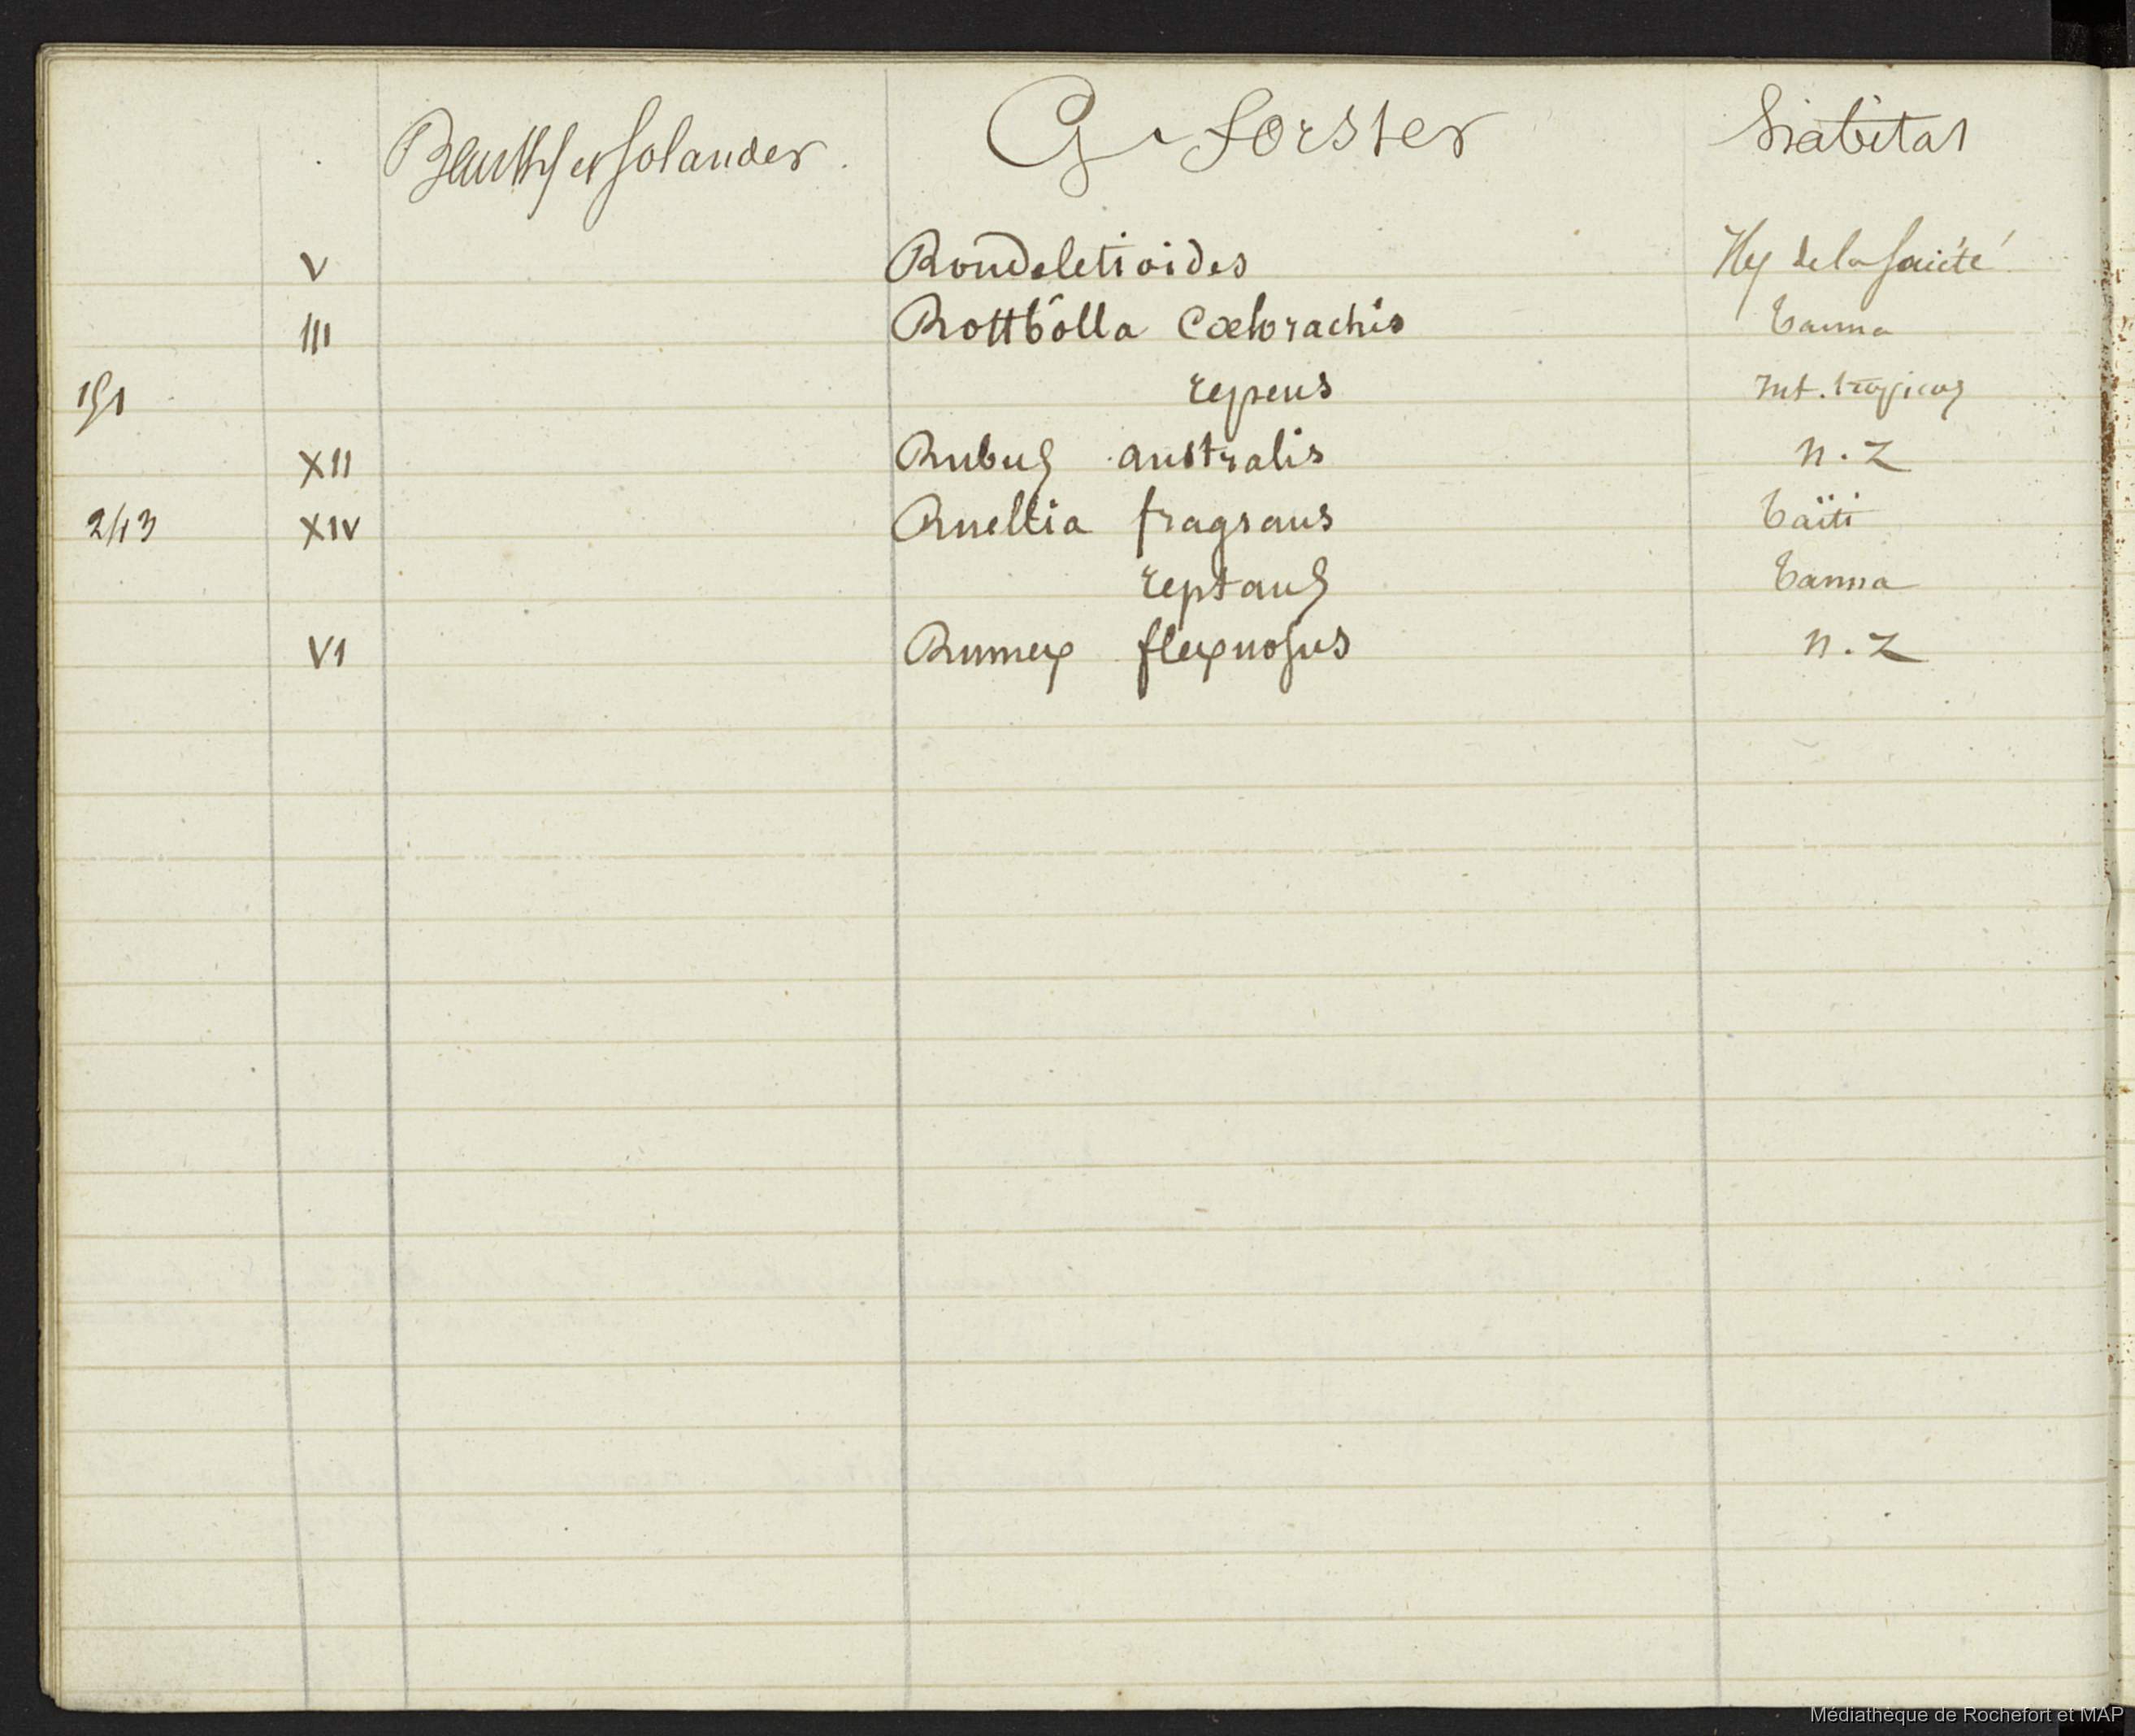 Banks et Solander G. Forster habitat
V Rondeletioides Iles de la Société
III Rottbölla Coelorachis Tanna
151 repens Int. tropicos
XII Rubus australis N. Z
243 XIV Ruellia fragrans Taïti
reptans Tanna
VI Rumex flexuosus N. Z
Médiathèque de Rochefort et MAP